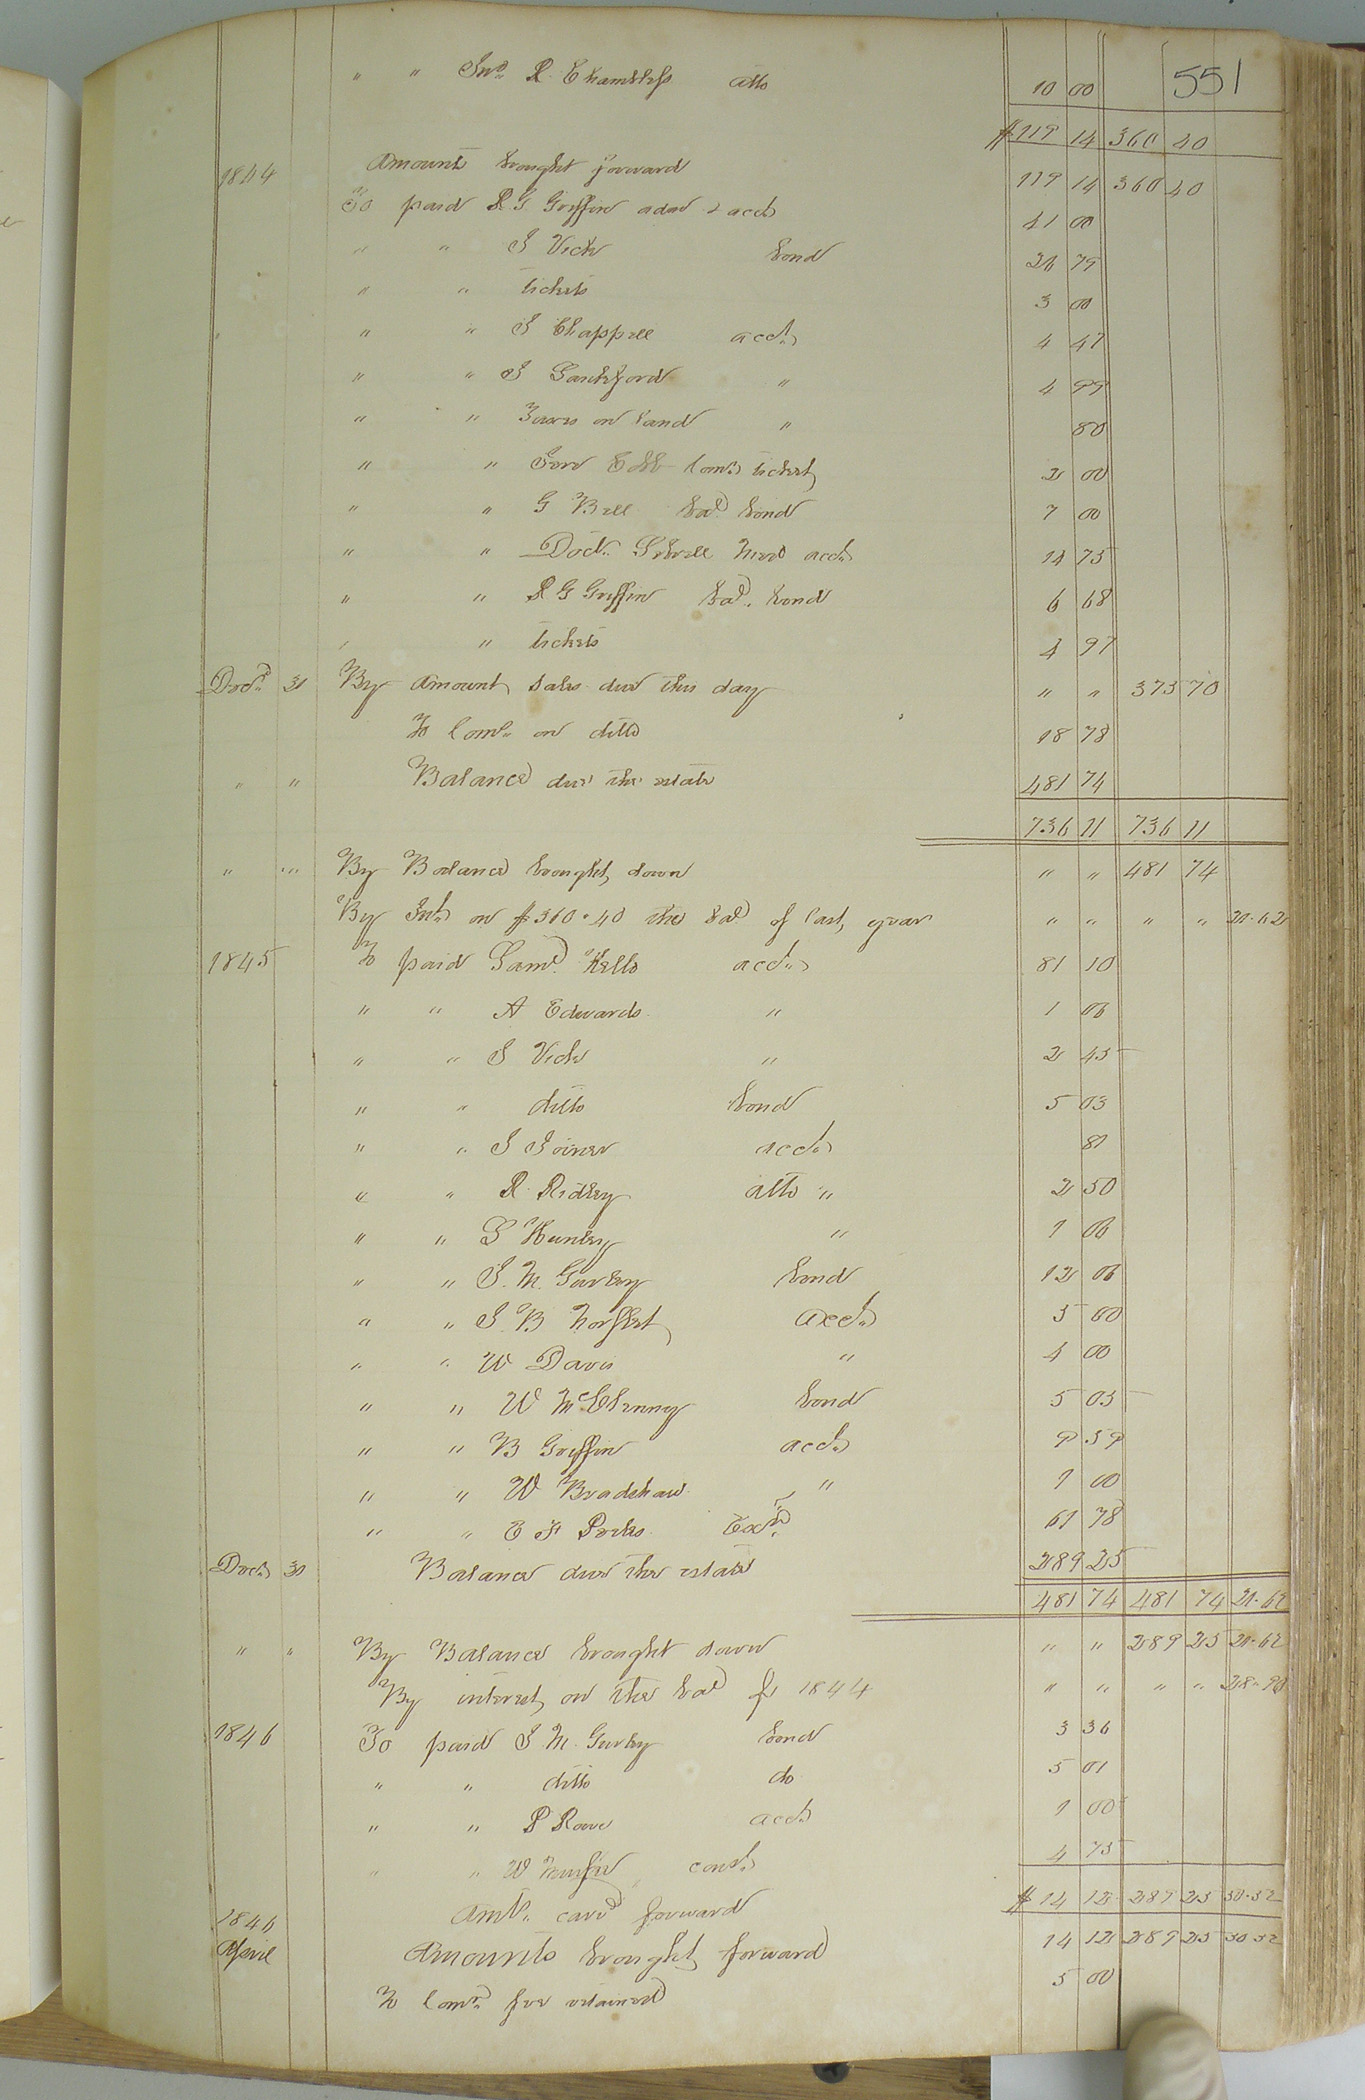 551
" " Jno R. Chambliss atto 10 00
$119 14 360 40
1844 Amounts brought forward 119 14 360 40
To paid R G Griffin adm & acct 41 00
" " J Vick bond 26 79
" " tickets 3 00
" " J Chappell acct 4 47
" " S Lankford " 4 99
" " Taxes on land " 80
" " Com tickets 2 00
" " G Bell bal bond 7 00
" " Doct Sebrell Med acct 14 75
" " R G Griffin bal. bond 6 68
" " tickets 4 97
Decr 31 By Amount sales due this day " " 373 70
To Coms on ditto 18 78
" " Balance due the estate 481 74
736 11 736 11
" " By Balance brought down " " 481 74
By Int on $360.40 the bal of last year " " " " 21.62
1845 To paid Saml Kello acct 81 10
" " A Edwards " 1 06
" " J Vick " 2 45
" " ditto bond 5 03
" " J Joiner acct 81
" " R Ridley atto " 2 50
" " Hunley " 1 06
" " J. M. Gurley bond 12 06
" " J B Norfleet acct 5 00
" " W Davis " 4 00
" " W McClenny bond 5 05
" " B Griffin acct 9 59
" " W Bradshaw " 1 00
" " E F Parks 61 78
Decr 31 Balance due the estate 289 25
481 74 481 74 21.62
" " By Balance brought down " " 289 25 21.62
By interest on the bal for 1844 " " " " 28.90
1846 To paid J. M. Gurley bond 3 36
" " ditto do 5 01
" " P Rowe acct 1 00
" " W 4 75
Amt card forward $14 12 289 25 50.52
1846
April Amounts brought forward 14 12 289 25 50.52
To Comr fee retained 5 00